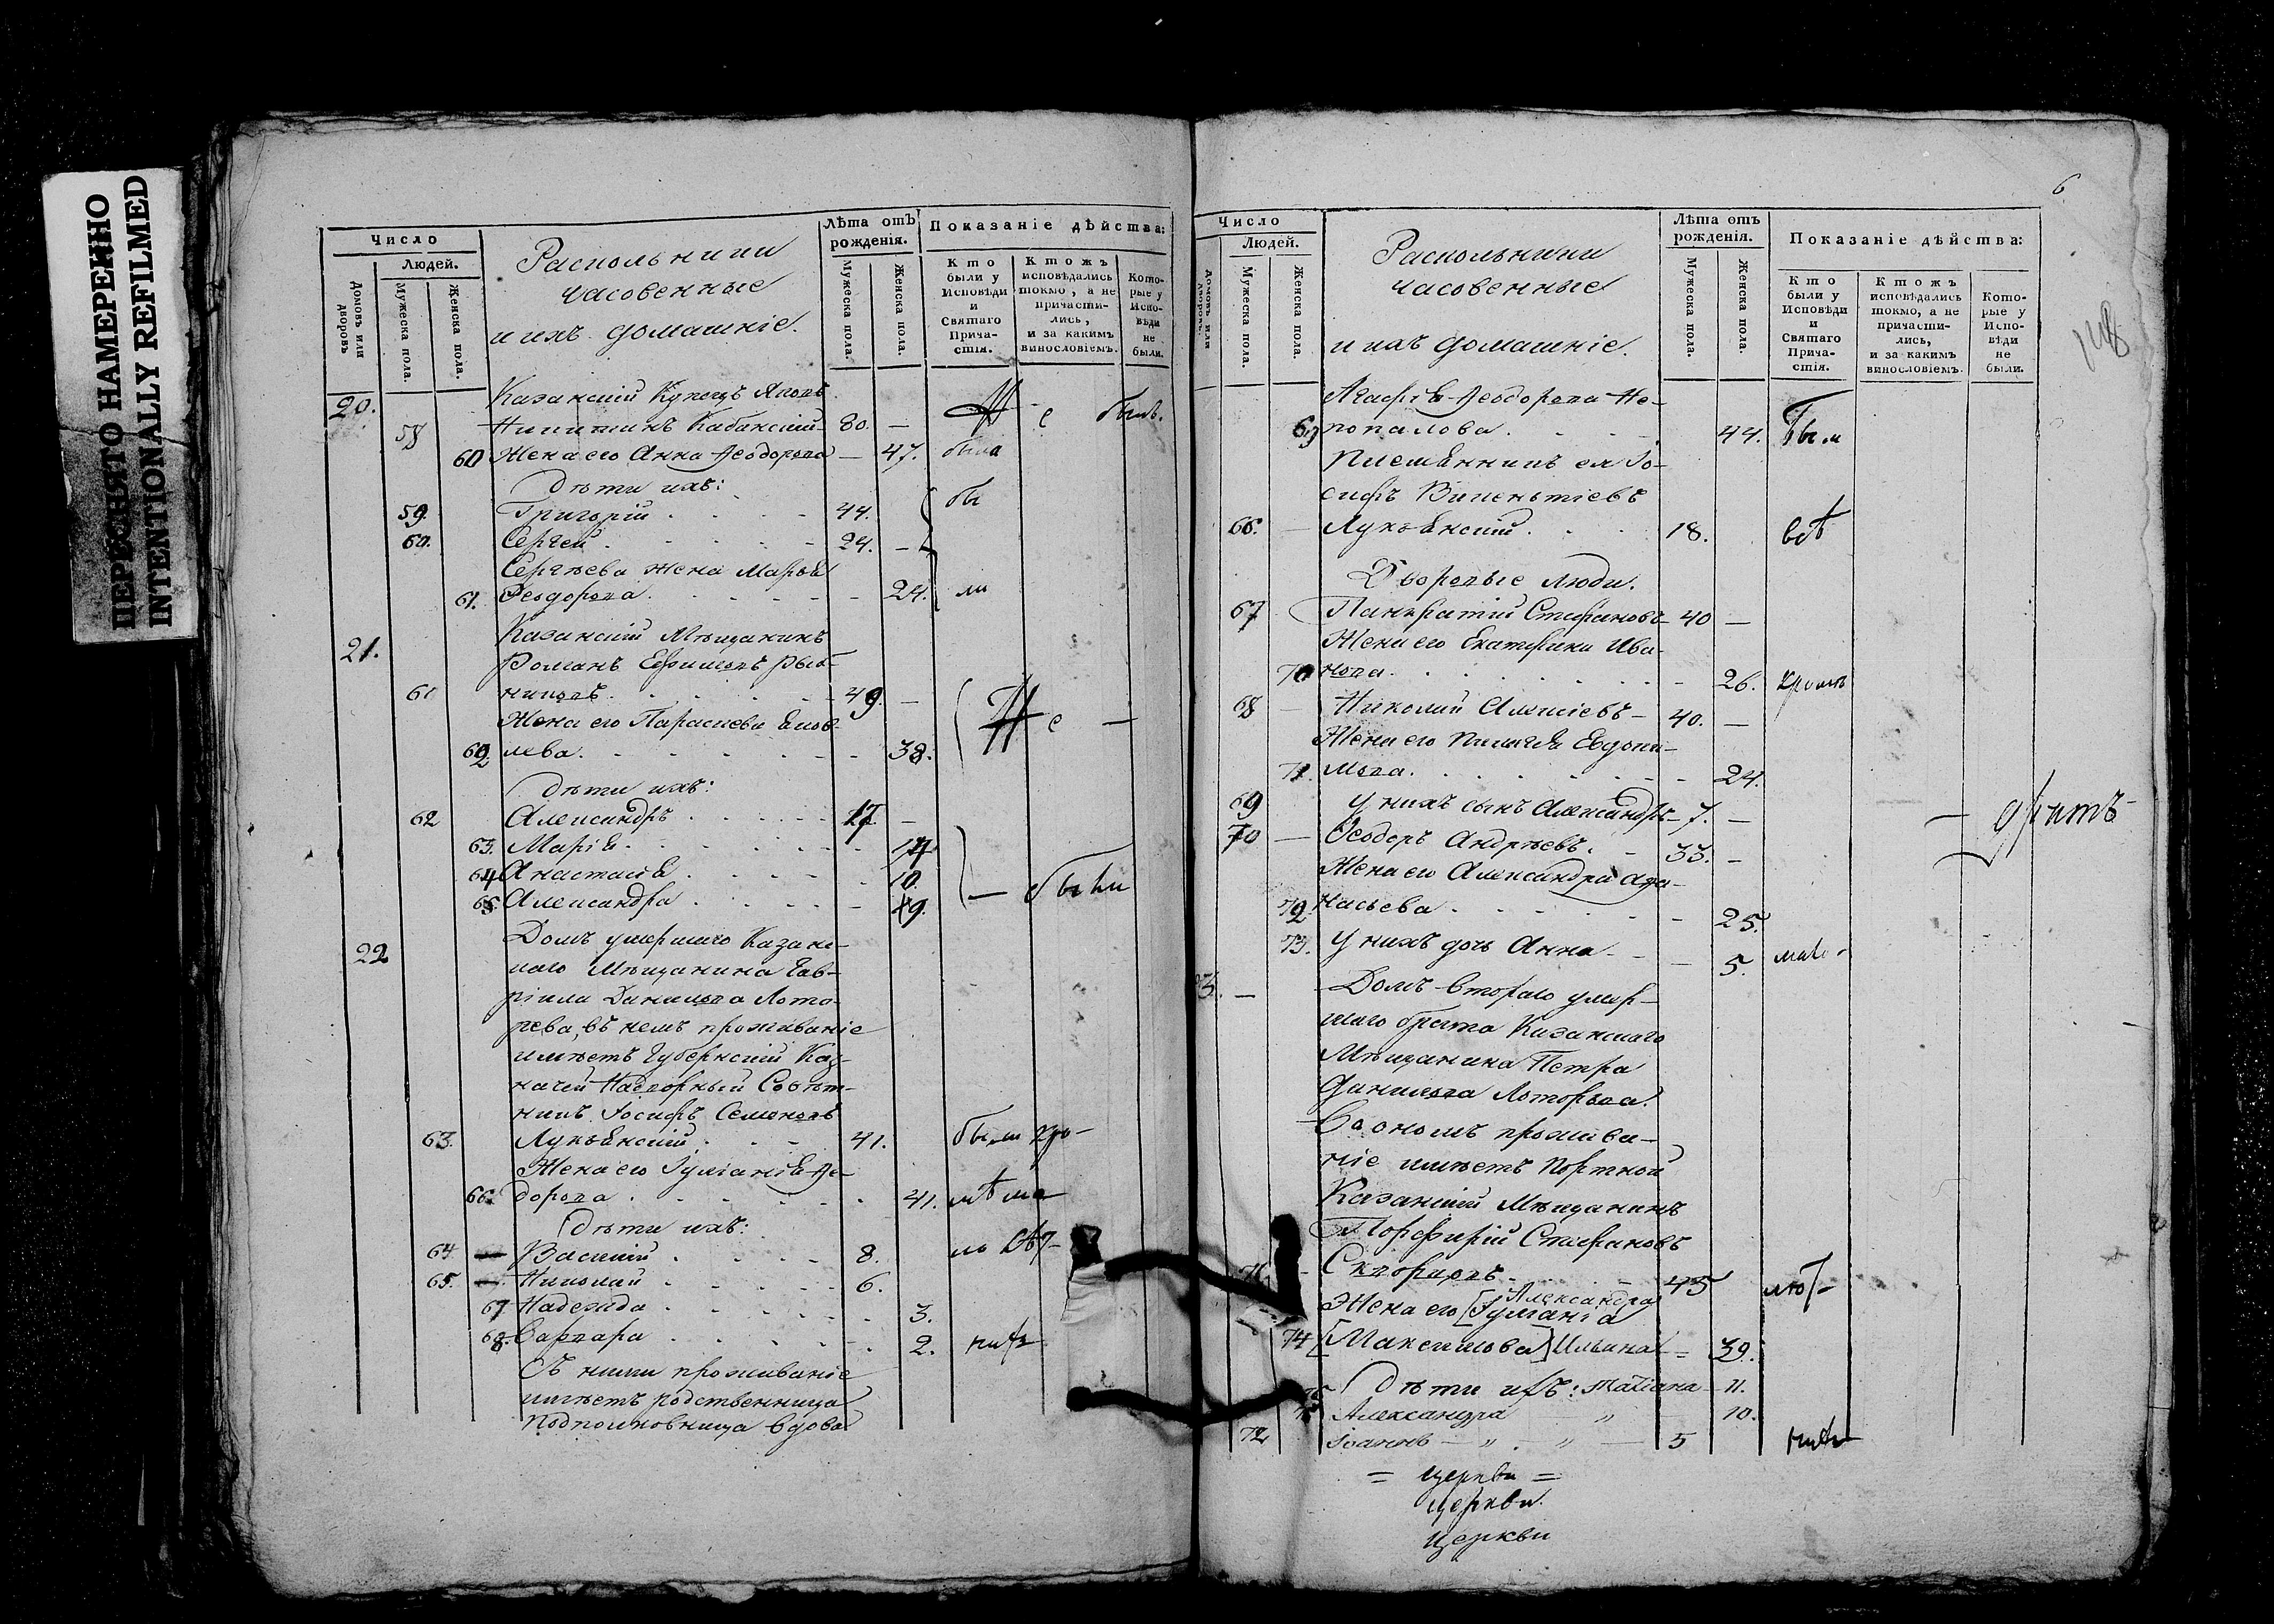 ПЕРЕСНЯТО НАМЕРЕННО
INTENTIONALLY REFILMED
Число
Людей.
Домовъ или дворовъ
Мужеска пола.
Женска пола.
Раскольники
часовенные
и ихъ домашніе.
Лѣта отъ
рожденія.
Мужеска пола.
Женска пола.
Показаніе дѣйства:
Кто
были у
Исповѣди
и
Святаго
Прича-
стія.
Ктожъ
исповѣдались
токмо, а не
причасти-
лись,
и за какимъ
винословіемъ.
Кото-
рые у
Испо-
вѣди
не
были.
20.
Казанскій Купецъ Яковъ
58 Никитинъ Кабанскій 80. — Не былъ.
60 Жена его Анна Ѳеодорова — 47. была
Дѣти ихъ:
59. Григорій 44. бы
60. Сергей 24. —
Сергѣева жена Марья
61. Ѳеодорова 24. ли
21. Казанскій Мѣщанинъ
Романъ Ефимовъ рыб-
61 никовъ 49. —
Не —
Жена его Параскева Яков-
62. лева 38.
Дѣти ихъ:
62 Александръ 17. —
63. Марія 14
64 Анастасія 10.
— были
65. Александра 9.
22 Домъ умершаго Казанс-
каго Мѣщанина Гав-
ріила Данилова Лото-
рева, въ немъ проживаніе
имѣетъ Губернскій Каз-
начей Надворный Совѣт-
никъ Іосифъ Семеновъ
63. Лукъянскій 41. были кро-
Жена его Іуліанія Ѳе-
66. дорова 41. мѣ ма-
Дѣти ихъ:
64 Василій 8.
65. Николай 6.
67 Надежда 3.
68. Варвара 2.
Съ ними проживаніе
имѣетъ родственница
Подполковница вдова
6
Число
Людей.
Домовъ или дворовъ.
Мужеска пола.
Женска пола.
Раскольники
часовенные
и ихъ домашніе.
Лѣта отъ
рожденія.
Мужеска пола.
Женска пола.
Показаніе дѣйства:
Кто
были у
Исповѣди
и
Святаго
Прича-
стія.
Ктожъ
исповѣдались
токмо, а не
причасти-
лись,
и за какимъ
винословіемъ.
Кото-
рые у
Испо-
вѣди
не
были.
Агафія Ѳеодорова Не-
69 попалова 44. Были
Племянникъ ея Іо-
сифъ Викентіевъ
66. Лукъянскій 18. всѣ
Дворовые люди.
67 Панкратій Стефановъ 40 —
Жена его Екатерина Ива-
70 нова 26. кромѣ
68 Николай Алексіевъ 40. —
Жена его Пелагея Евдоки-
71. мова 24.
69 У нихъ сынъ Александръ 7. —
70 Ѳеодоръ Андреевъ 33. —
Жена его Александра Афа-
72 насьева 25.
73. У нихъ дочь Анна 5.
Домъ втораго умер-
шаго брата Казанскаго
Мѣщанина Петра
Данилова Лоторева.
Во ономъ прожива-
ніе имѣетъ Портной
Казанскій Мѣщанинъ
Порфирій Стефановъ
Скворцовъ 45
Александра
Жена его [Іуліанія
74 [Максимова] Ильина 39.
Дѣти ихъ: Татіана 11.
Александра — " 10.
72 Іоаннъ — " — " — 5
= церкви =
церкви.
церкви